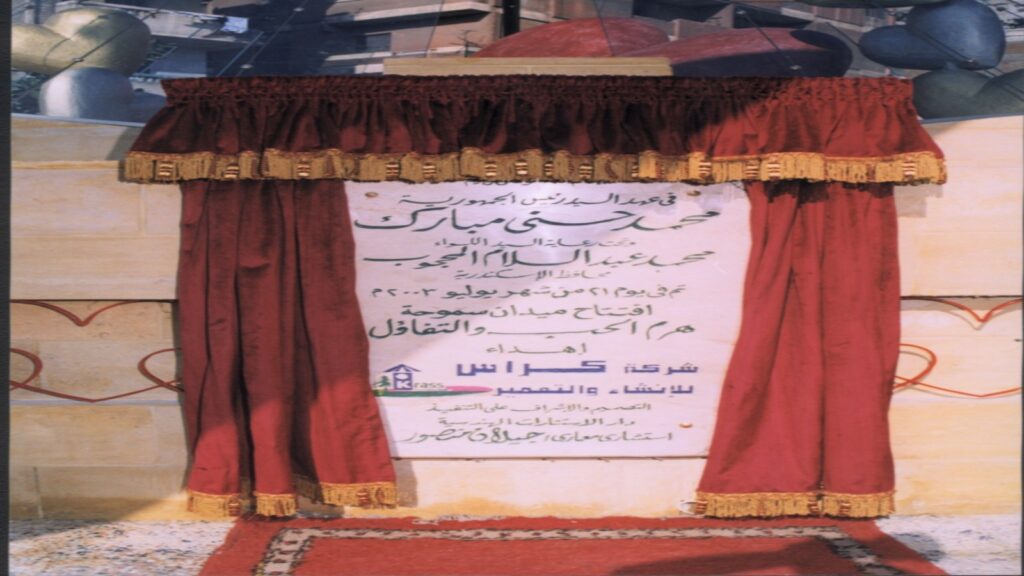 في عهد السيد رئيس الجمهورية
محمد حسني مبارك
وتحت رعاية السيد اللواء
محمد عبد السلام المحجوب
محافظ الإسكندرية
تم في يوم ٢١ من شهر يوليو ٢٠٠٢ م
افتتاح ميدان سموحة
هرم الحب والتفاؤل
اهداء
شركة كراس
للإنشاء والتعمير
Krass
التصميم والإشراف على التنفيذ
دار الاستشارات الهندسية
استشاري معماري / جيلان منصور